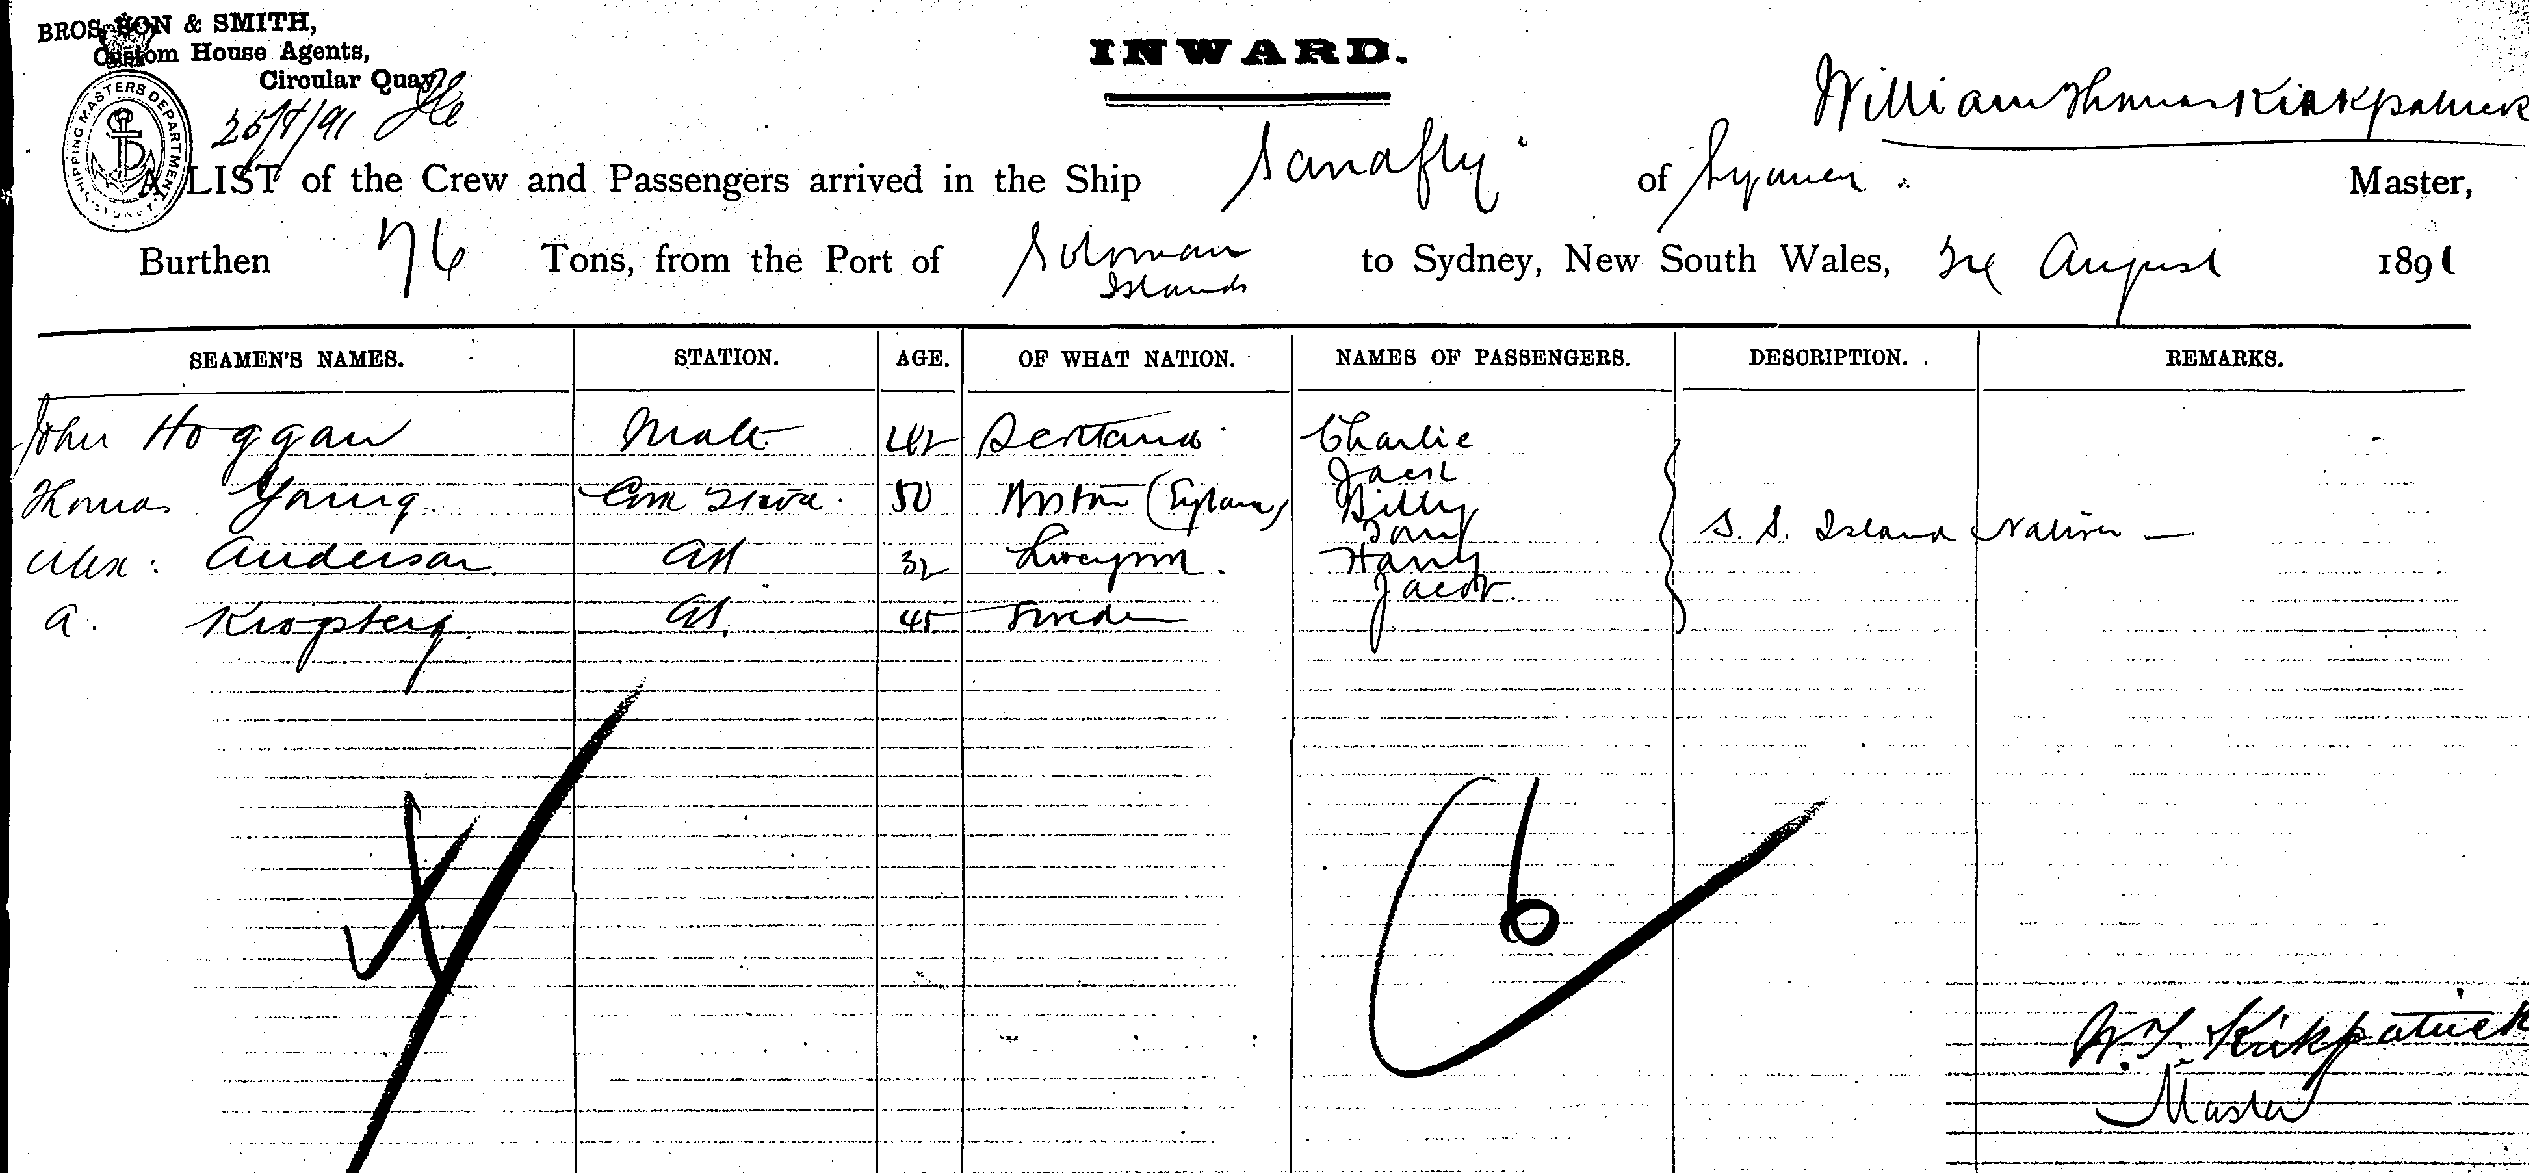 BROS SON & SMITH,
Custom House Agents,
Circular Quay
SHIPPING MASTERS DEPARTMENT SYDNEY
INWARD.
William Thomas Kirkpatrick
A LIST of the Crew and Passengers arrived in the Ship Sandfly of Sydney Master,
Burthen 76 Tons, from the Port of Soloman Islands to Sydney, New South Wales, August 1891
SEAMEN'S NAMES. STATION. AGE. OF WHAT NATION. NAMES OF PASSENGERS. DESCRIPTION. REMARKS.
John Hoggan Mate 42 Scotland Charlie
Jack
Thomas Young 50 Billy
Tom
S. S. Island Natives
Alex: Anderson AB 32 Liverpool. Harry
Jacob
A. Kropberg AB. 45 Sweden
4
6
W. T. Kirkpatrick
Master